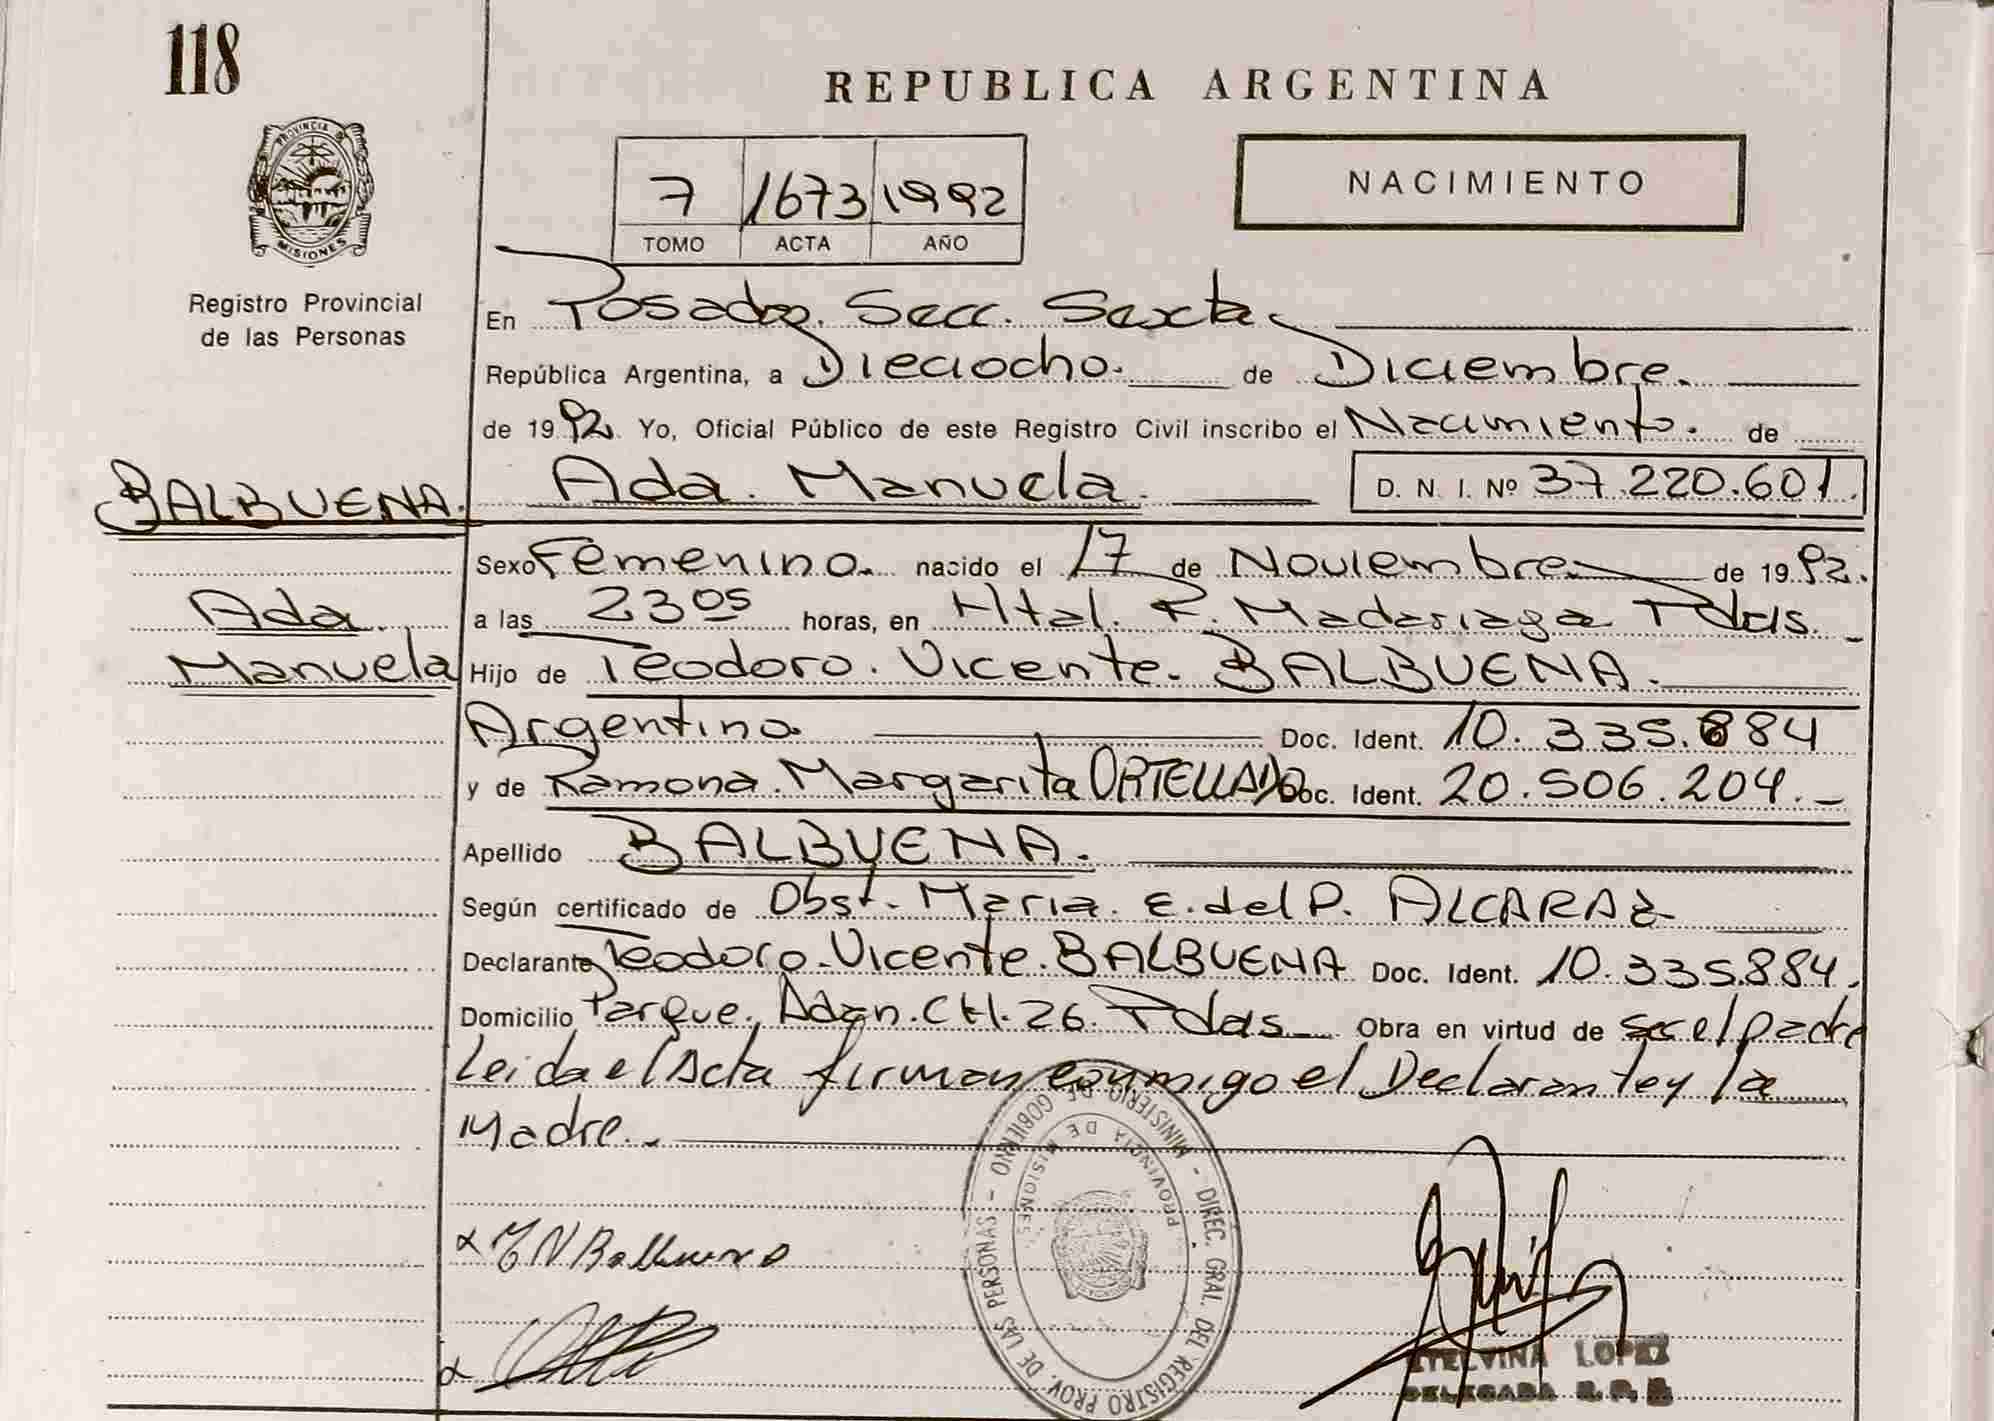 118
REPUBLICA ARGENTINA
PROVINCIA DE
MISIONES
Registro Provincial
de las Personas
7 1673 1992
TOMO ACTA AÑO
NACIMIENTO
En Posadas. Secc. Sexta
República Argentina, a Dieciocho. de Diciembre.
de 1992. Yo, Oficial Público de este Registro Civil inscribo el Nacimiento. de
BALBUENA. Ada. Manuela. D. N. I. Nº 37.220.601.
Sexo Femenino. nacido el 17 de Noviembre de 1992.
Ada a las 23 05 horas, en Htal. R. Madariaga Pdas.
Manuela Hijo de Teodoro. Vicente. BALBUENA.
Argentino Doc. Ident. 10.335.884
y de Ramona. Margarita ORTELLADO Doc. Ident. 20.506.204.
Apellido BALBUENA.
Según certificado de Obst. Maria. E. del P. ALCARAZ
Declarante Teodoro. Vicente. BALBUENA Doc. Ident. 10.335.884.
Domicilio Parque. Adan. CH. 26. Pdas Obra en virtud de ser el padre
Leida el Acta firman conmigo el Declarante y la
Madre.
DIREC. GRAL. DEL REGISTRO PROV. DE LAS PERSONAS - MINISTERIO DE GOBIERNO -
PROVINCIA DE MISIONES
Balbuena
ETELVINA LOPEZ
DELEGADA R.P.